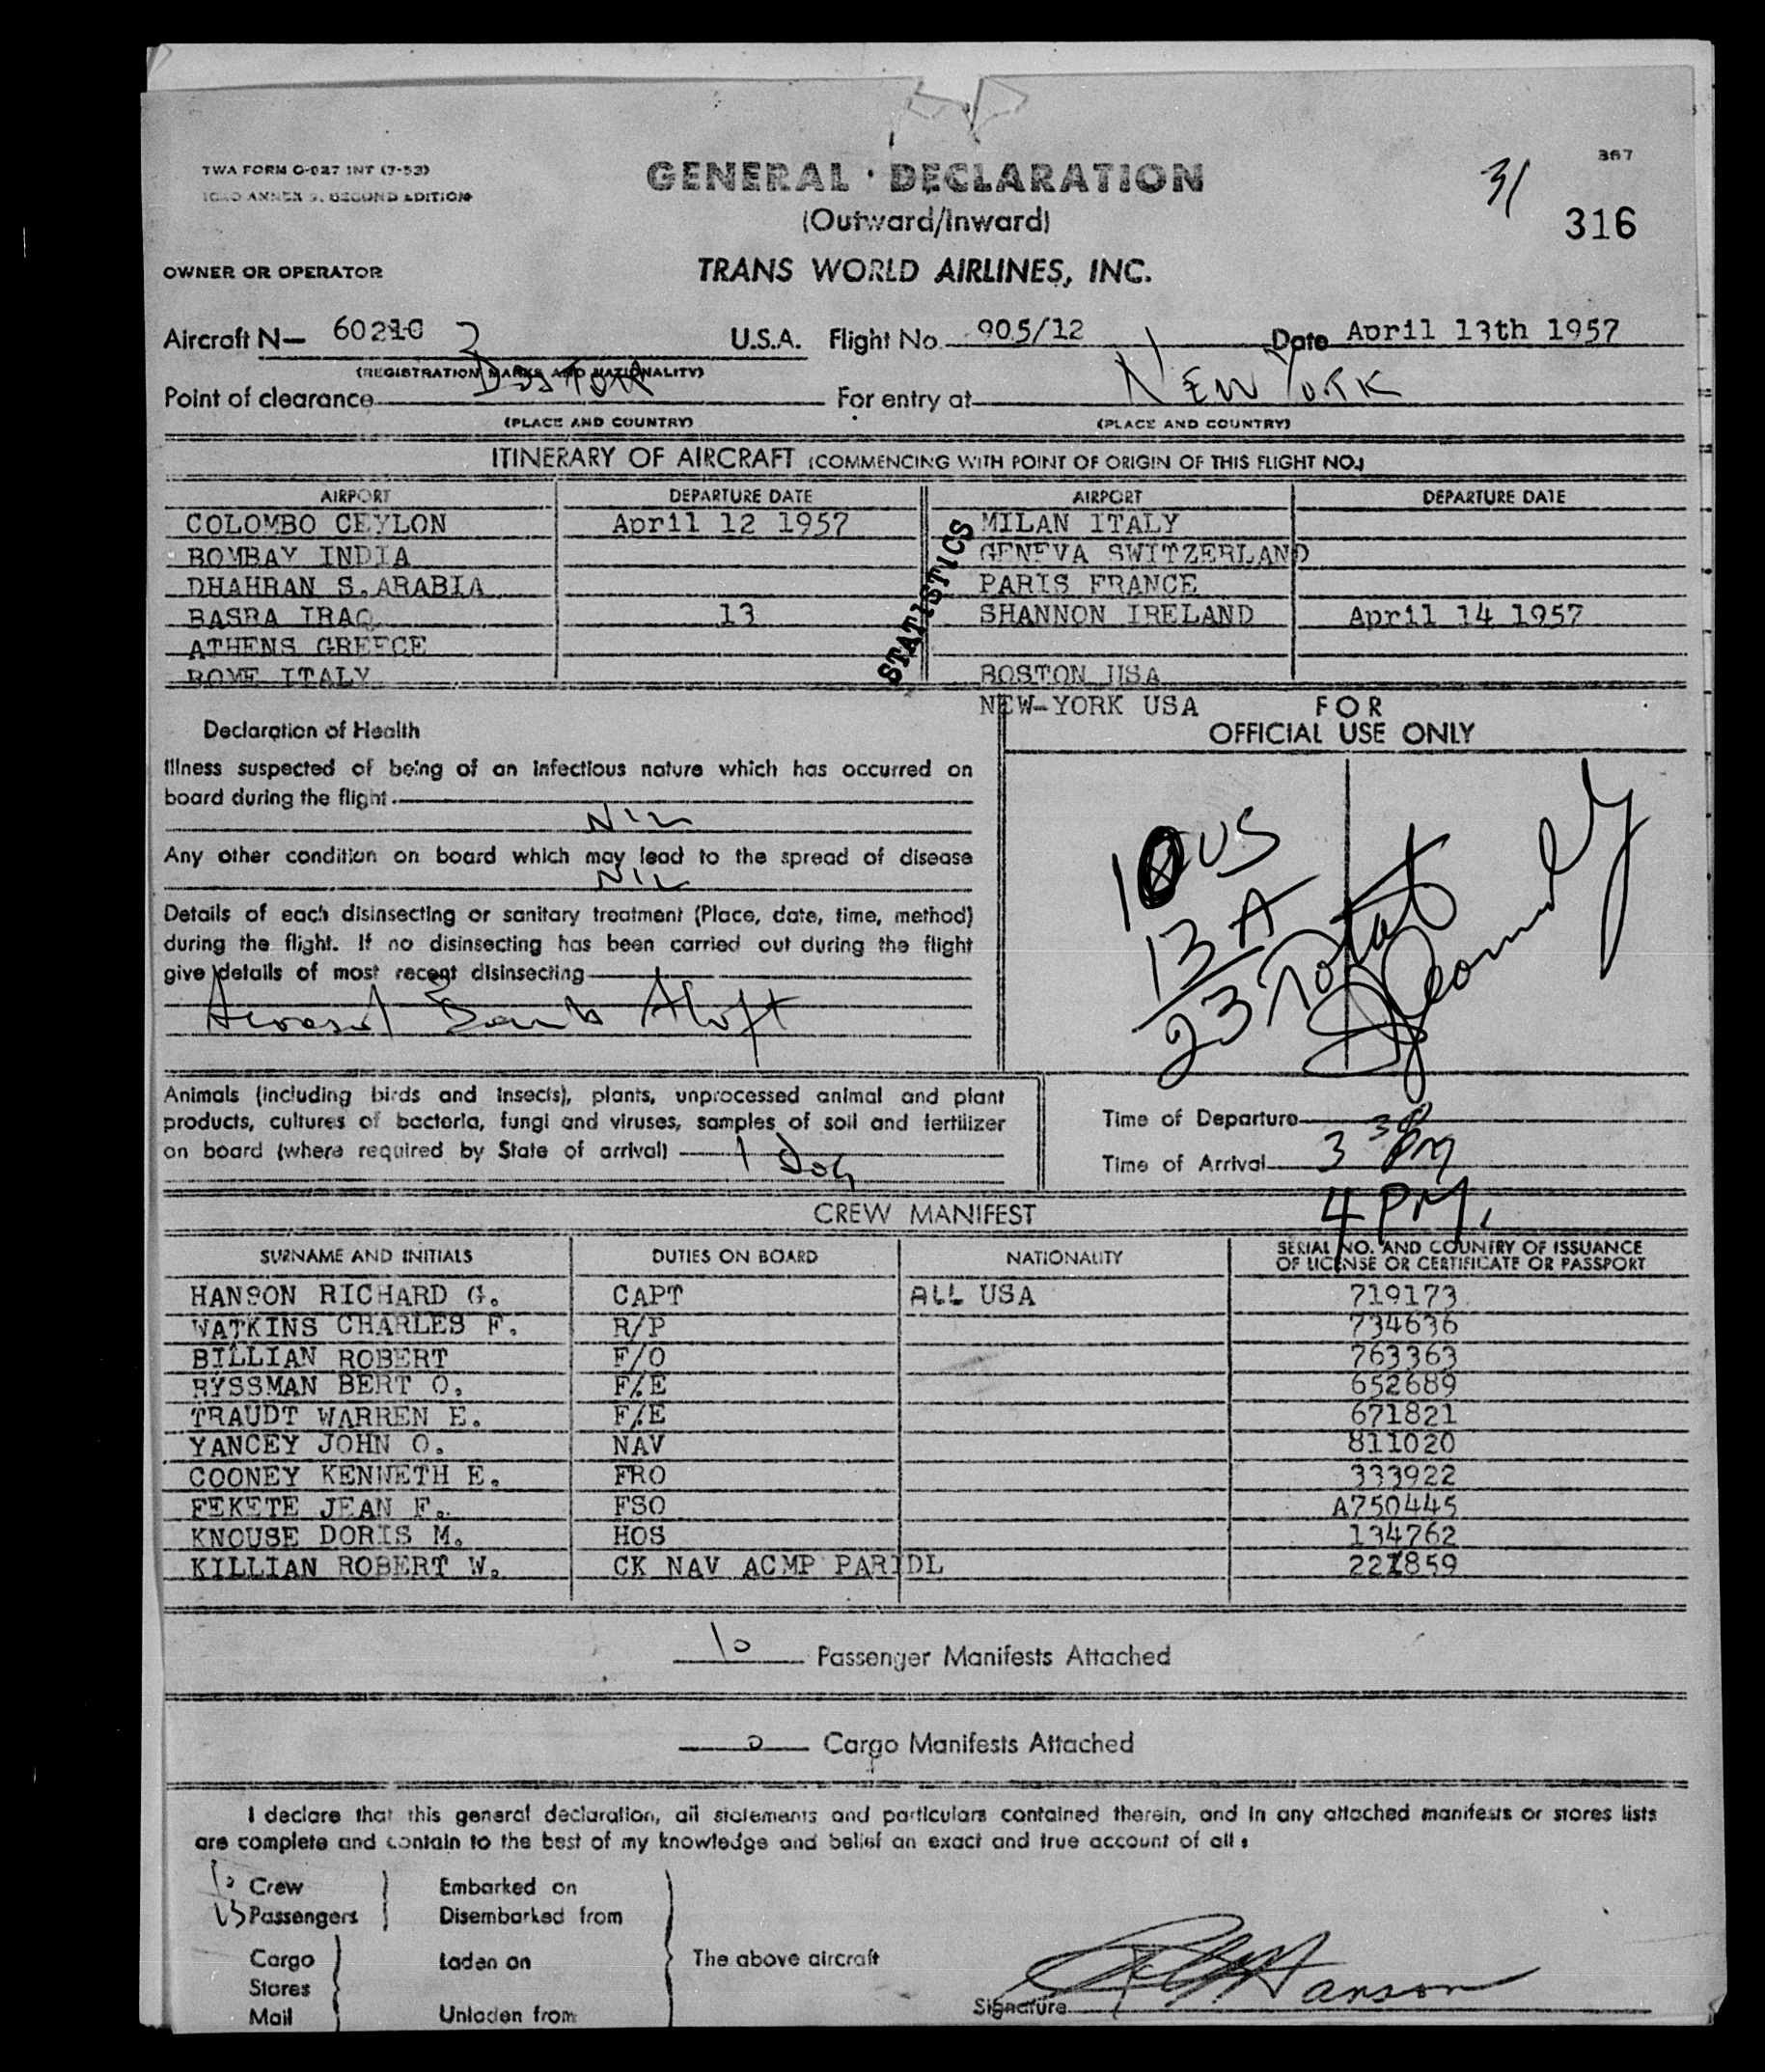 367
TWA FORM O-027 INT (7-53)
GENERAL · DECLARATION
31
ICAO ANNEX 9, SECOND EDITION
(Outward/Inward)
316
OWNER OR OPERATOR
TRANS WORLD AIRLINES, INC.
Aircraft N— U.S.A. Flight No. 905/12 Date April 13th 1957
(REGISTRATION MARKS AND NATIONALITY)
Point of clearance Boston For entry at NEW YORK
(PLACE AND COUNTRY) (PLACE AND COUNTRY)
ITINERARY OF AIRCRAFT (COMMENCING WITH POINT OF ORIGIN OF THIS FLIGHT NO.)
AIRPORT DEPARTURE DATE AIRPORT DEPARTURE DATE
COLOMBO CEYLON April 12 1957 MILAN ITALY
BOMBAY INDIA GENEVA SWITZERLAND
DHAHRAN S.ARABIA PARIS FRANCE
BASRA IRAQ 13 SHANNON IRELAND April 14 1957
ATHENS GREECE
ROME ITALY BOSTON USA
STATISTICS
NEW-YORK USA
FOR
OFFICIAL USE ONLY
Declaration of Health
Illness suspected of being of an infectious nature which has occurred on
board during the flight.
NIL
Any other condition on board which may lead to the spread of disease
NIL
Details of each disinsecting or sanitary treatment (Place, date, time, method)
during the flight. If no disinsecting has been carried out during the flight
give details of most recent disinsecting
Aerosol Bomb Aloft
10 US
13 A
23 Total
Animals (including birds and insects), plants, unprocessed animal and plant
products, cultures of bacteria, fungi and viruses, samples of soil and fertilizer
on board (where required by State of arrival) 1 Dog
Time of Departure 3 30 PM
Time of Arrival 4 PM.
CREW MANIFEST
SURNAME AND INITIALS DUTIES ON BOARD NATIONALITY SERIAL NO. AND COUNTRY OF ISSUANCE
OF LICENSE OR CERTIFICATE OR PASSPORT
HANSON RICHARD G. CAPT ALL USA 719173
WATKINS CHARLES F. R/P 734636
BILLIAN ROBERT F/O 763363
RYSSMAN BERT O. F/E 652689
TRAUDT WARREN E. F/E 671821
YANCEY JOHN O. NAV 811020
COONEY KENNETH E. FRO 333922
FEKETE JEAN F. FSO A750445
KNOUSE DORIS M. HOS 134762
KILLIAN ROBERT W. CK NAV ACMP PARIDL 221859
10 Passenger Manifests Attached
0 Cargo Manifests Attached
I declare that this general declaration, all statements and particulars contained therein, and in any attached manifests or stores lists
are complete and contain to the best of my knowledge and belief an exact and true account of all :
10 Crew Embarked on
13 Passengers Disembarked from
Cargo Laden on The above aircraft
Stores
Mail Unladen from
Signature R G Hanson